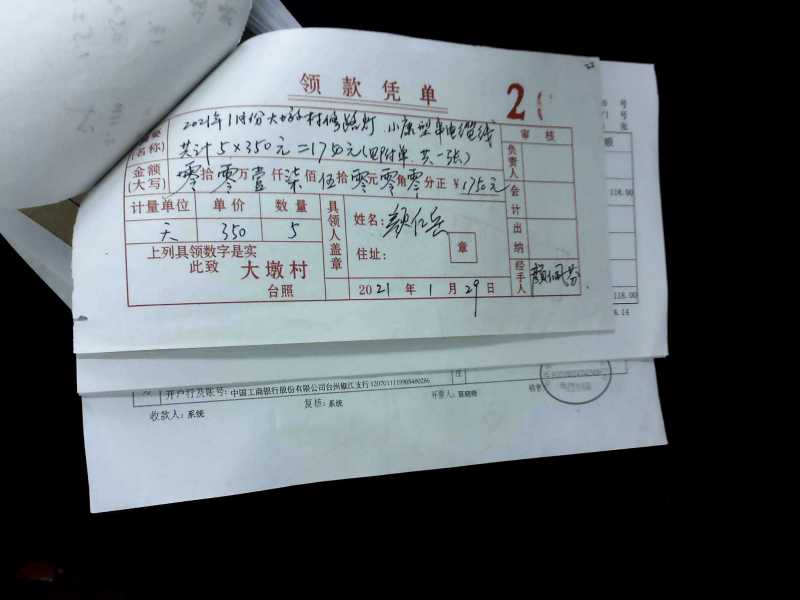 领款凭单
2
摘要
(名称)
2021年1月份大墩村修路灯 小康型车电缆线
共计5×350元=1750元(见附单共一张)
金额
(大写)
零拾零万壹仟柒佰伍拾零元零角零分正 ¥1750元
计量单位 单价 数量
天 350 5
上列具领数字是实
此致 大墩村
台照
具领人盖章
姓名:颜仁岳
住址: 章
2021年1月29日
审核
负责人
会计
出纳
经手人
号
号
张
额
118.00
118.00
8.14
开户行及账号:中国工商银行股份有限公司台州椒江支行1207011119905480286
收款人:系统 复核:系统 开票人: